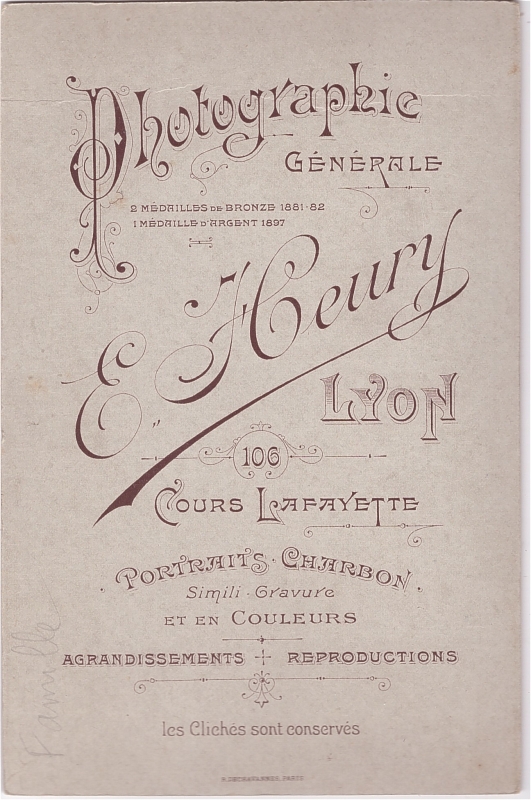 Photographie
GÉNÉRALE
2 MÉDAILLES DE BRONZE 1881-82
1 MÉDAILLE D'ARGENT 1897
E. Heury
LYON
106
COURS LAFAYETTE
PORTRAITS · CHARBON
Simili · Gravure
ET EN COULEURS
AGRANDISSEMENTS REPRODUCTIONS
les Clichés sont conservés
PARIS